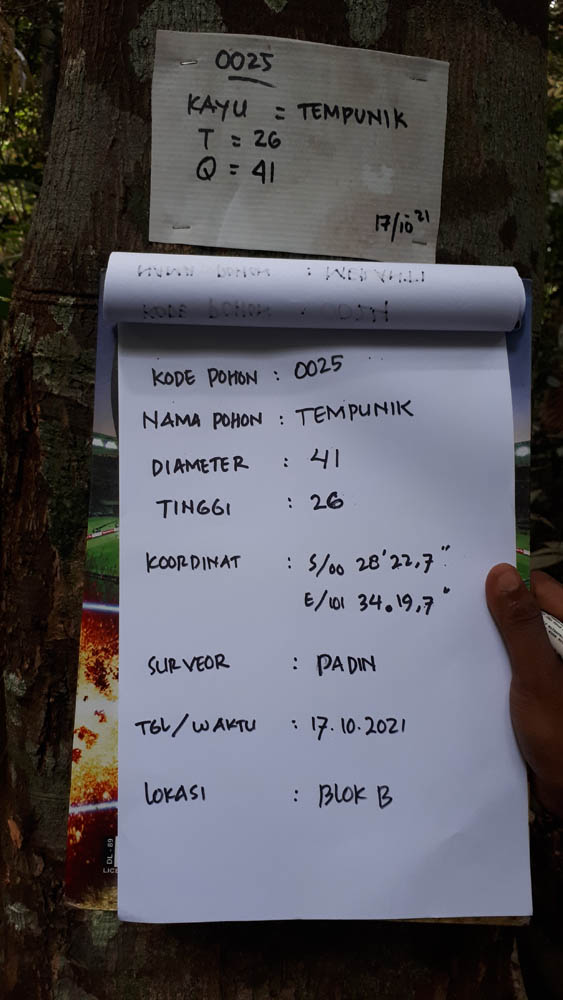 0025
KAYU = TEMPUNIK
T = 26
Q = 41
17/10 21
KODE POHON : 0025
NAMA POHON : TEMPUNIK
DIAMETER : 41
TINGGI : 26
KOORDINAT : S/00 28'22,7"
E/101 34.19,7"
SURVEOR : PADIN
TGL/WAKTU : 17.10.2021
LOKASI : BLOK B
DL - 89